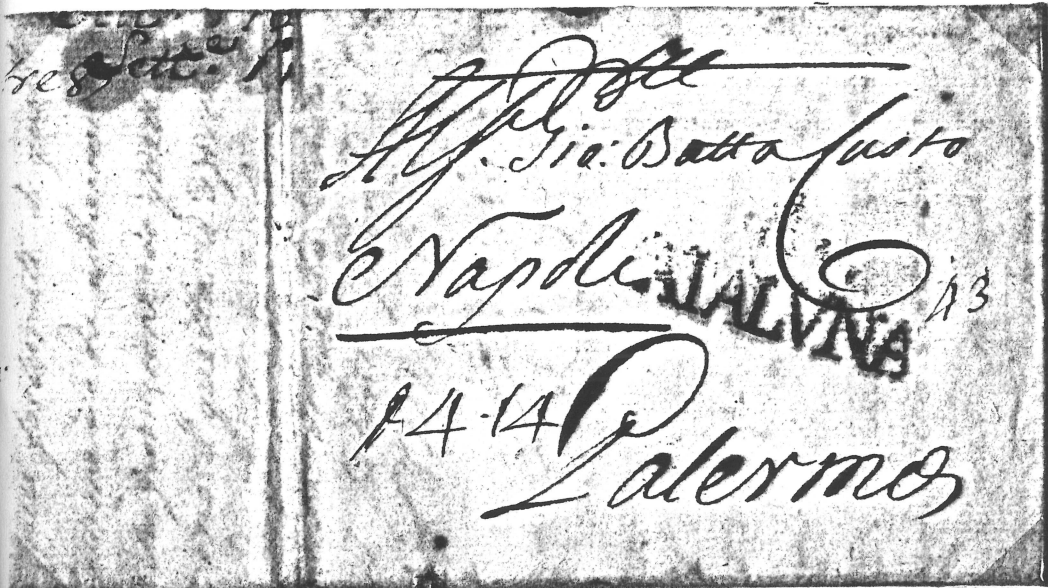 Sett.e
Al Sig.
Gio: Batta Custo
Napoli
AIALVNA
43
14-14
Palermo